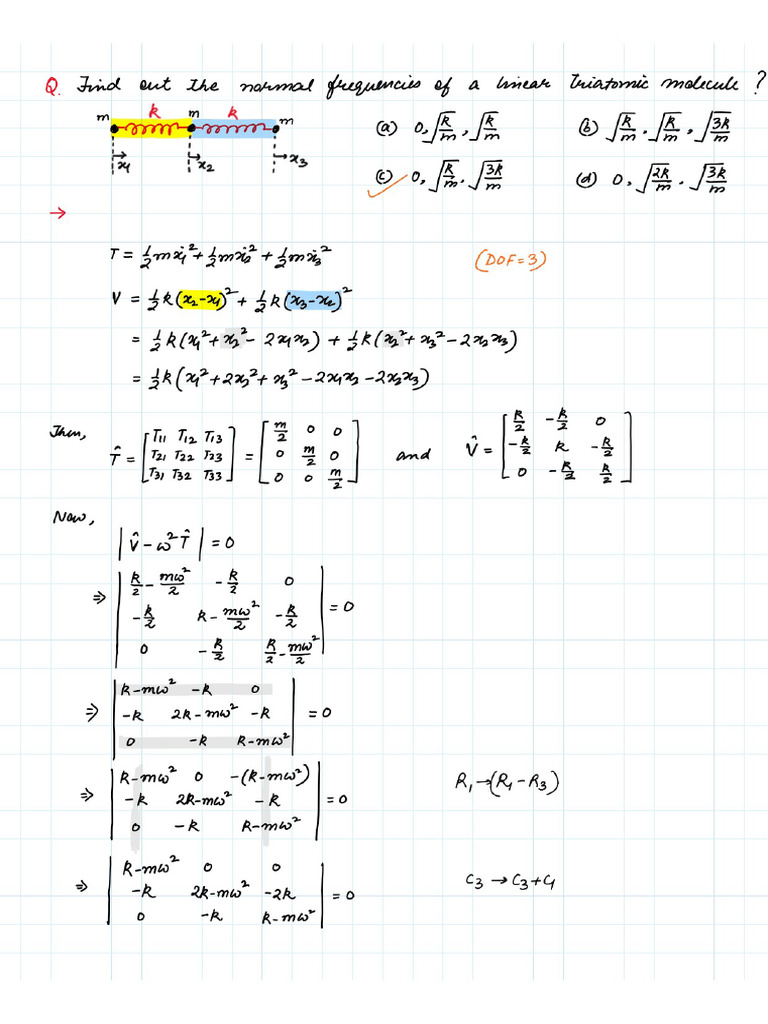 Q. Find out the normal frequencies of a linear triatomic molecule ?
m k m k m
x₁ x₂ x₃
(a) 0, √(k/m), √(k/m) (b) √(k/m), √(k/m), √(3k/m)
(c) 0, √(k/m), √(3k/m) (d) 0, √(2k/m), √(3k/m)
→
T = ½mẋ₁² + ½mẋ₂² + ½mẋ₃² (DOF=3)
V = ½k(x₂-x₁)² + ½k(x₃-x₂)²
= ½k(x₁² + x₂² - 2x₁x₂) + ½k(x₂² + x₃² - 2x₂x₃)
= ½k(x₁² + 2x₂² + x₃² - 2x₁x₂ - 2x₂x₃)
Then, T̂ = [T₁₁ T₁₂ T₁₃; T₂₁ T₂₂ T₂₃; T₃₁ T₃₂ T₃₃] = [m/2 0 0; 0 m/2 0; 0 0 m/2] and V̂ = [k/2 -k/2 0; -k/2 k -k/2; 0 -k/2 k/2]
Now,
|V̂ - ω²T̂| = 0
⇒ |k/2 - mω²/2 -k/2 0; -k/2 k - mω²/2 -k/2; 0 -k/2 k/2 - mω²/2| = 0
⇒ |k-mω² -k 0; -k 2k-mω² -k; 0 -k k-mω²| = 0
⇒ |k-mω² 0 -(k-mω²); -k 2k-mω² -k; 0 -k k-mω²| = 0 R₁→(R₁-R₃)
⇒ |k-mω² 0 0; -k 2k-mω² -2k; 0 -k k-mω²| = 0 C₃→C₃+C₁